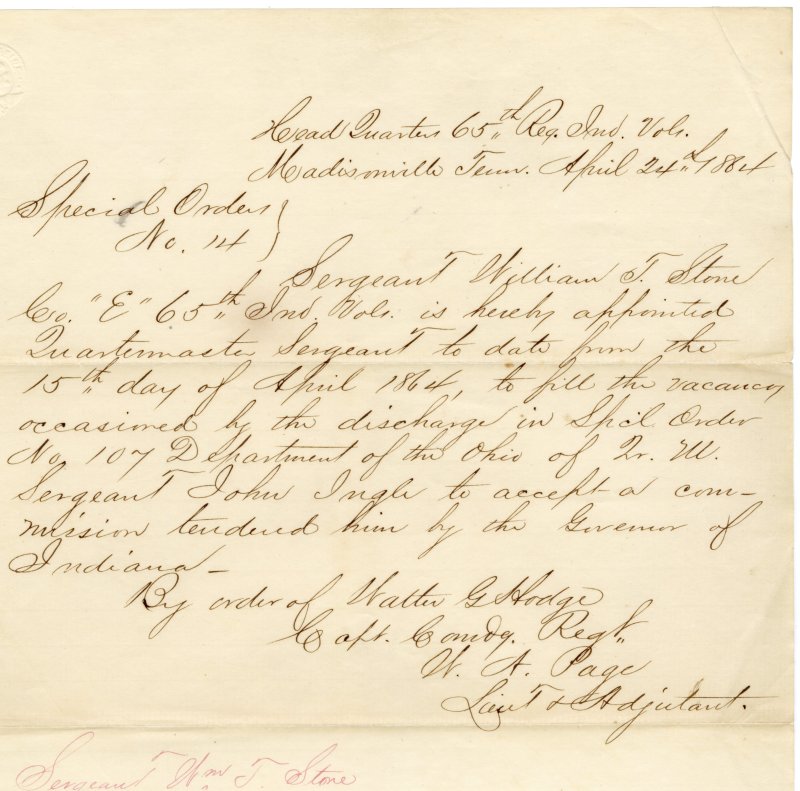 Head Quarters 65th Reg. Ind. Vols.
Madisonville Tenn. April 24th 1864
Special Orders }
No. 14
Sergeant William T. Stone
Co. "E" 65th Ind. Vols. is hereby appointed
Quartermaster Sergeant to date from the
15th day of April 1864, to fill the vacancy
occasioned by the discharge in Spcl Order
No. 107 Department of the Ohio of Qr. M.
Sergeant John Ingle to accept a com-
mission tendered him by the Governor of
Indiana -
By order of Walter G Hodge
Capt. Comdg. Regt.
W. A. Page
Lieut & Adjutant.
Sergeant Wm T. Stone